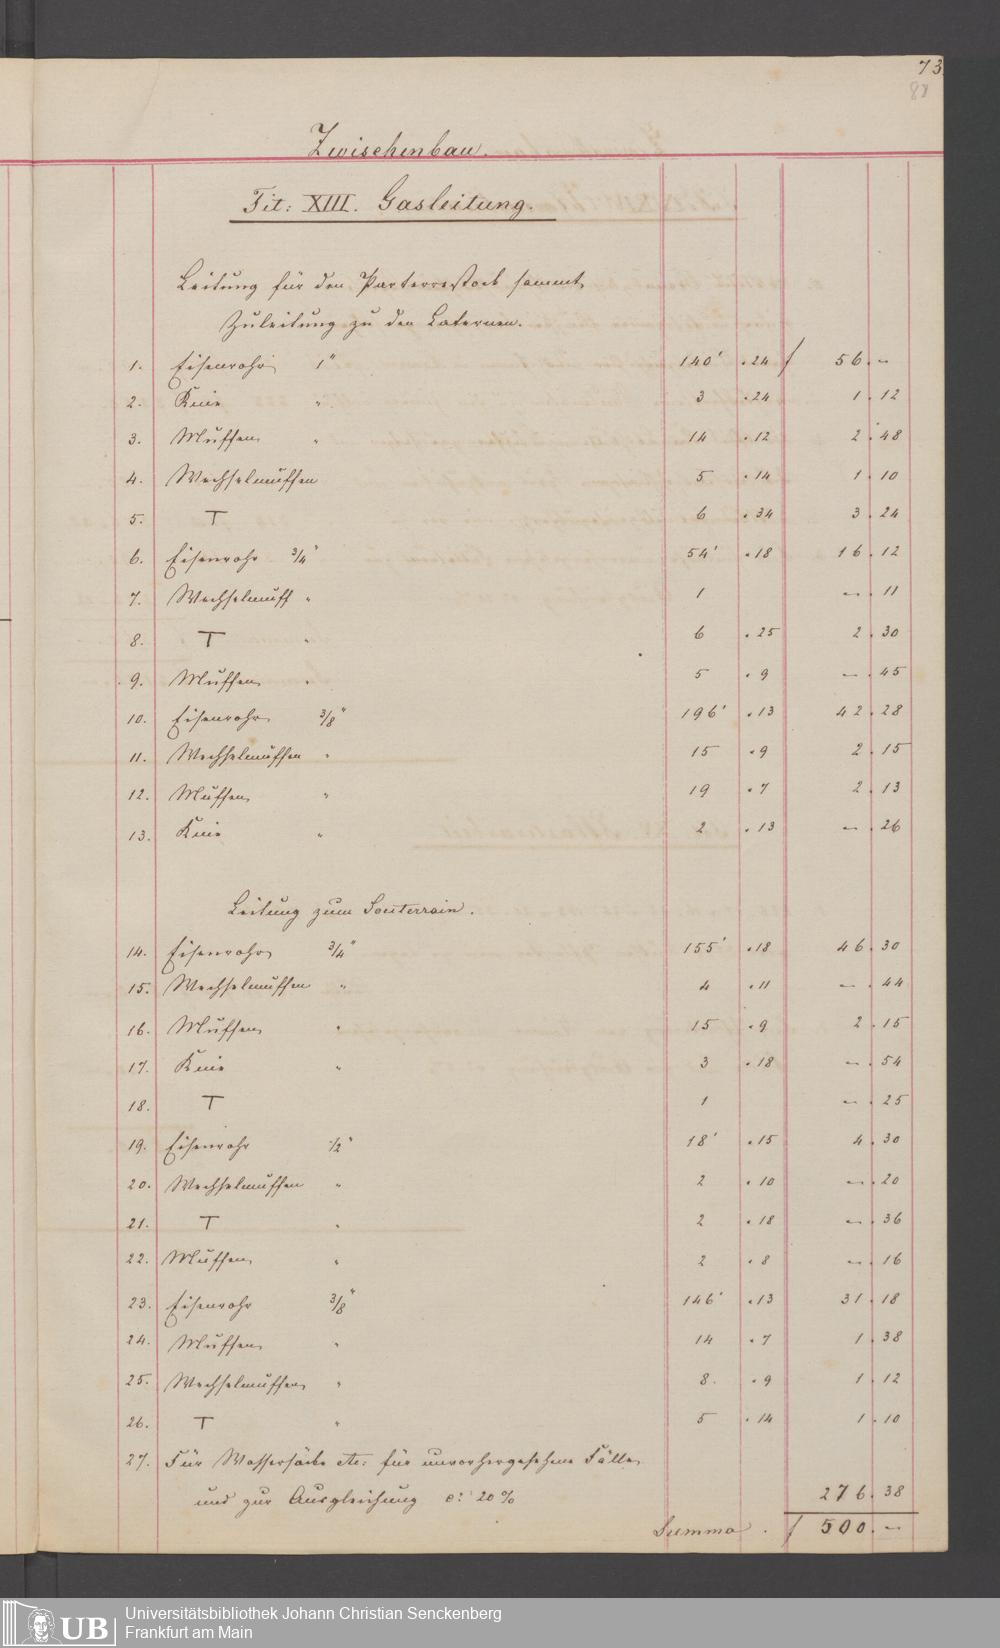 73.
88
Zwischenbau.
Tit: XIII. Gasleitung.
Leitung für den Parterrestock sammt
Zuleitung zu den Laternen.
1. Eisenrohr 1" 140' . 24 f 56 . –
2. Knie " 3 . 24 1 . 12
3. Muffen " 14 . 12 2 . 48
4. Wechselmuffen 5 . 14 1 . 10
5. T 6 . 34 3 . 24
6. Eisenrohr 3/4" 54' . 18 16 . 12
7. Wechselmuff " 1 – . 11
8. T " 6 . 25 2 . 30
9. Muffen " 5 . 9 – . 45
10. Eisenrohr 3/8" 196' . 13 42 . 28
11. Wechselmuffen " 15 . 9 2 . 15
12. Muffen " 19 . 7 2 . 13
13. Knie " 2 . 13 – . 26
Leitung zum Souterrain.
14. Eisenrohr 3/4" 155' . 18 46 . 30
15. Wechselmuffen " 4 . 11 – . 44
16. Muffen " 15 . 9 2 . 15
17. Knie " 3 . 18 – . 54
18. T 1 – . 25
19. Eisenrohr 1/2" 18' . 15 4 . 30
20. Wechselmuffen " 2 . 10 – . 20
21. T " 2 . 18 – . 36
22. Muffen " 2 . 8 – . 16
23. Eisenrohr 3/8" 146' . 13 31 . 18
24. Muffen " 14 . 7 1 . 38
25. Wechselmuffen " 8 . 9 1 . 12
26. T " 5 . 14 1 . 10
27. Für Wassersäcke etc: für unvorhergesehene Fälle
und zur Ausgleichung c: 20 % 276 . 38
Summa . f 500 . –
UB
Universitätsbibliothek Johann Christian Senckenberg
Frankfurt am Main